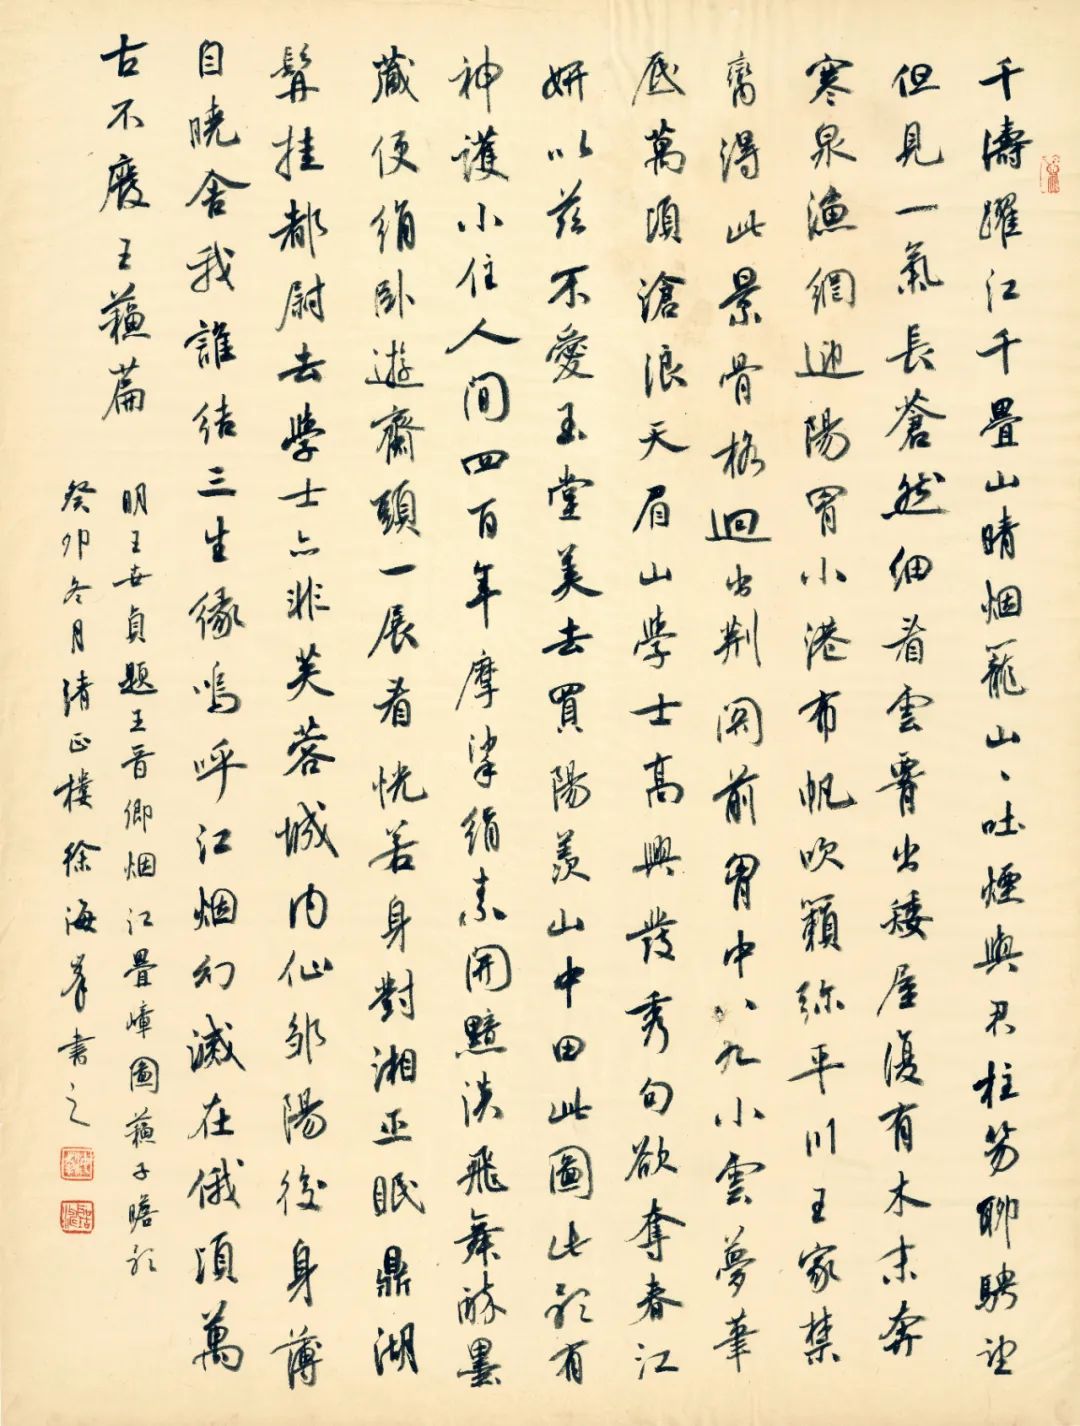 千濤躍江千疊山晴烟罷山、吐煙與君柱笏聊騁望
但見一氣長蒼然細看雲脊出矮屋復有木末奔
寒泉漁網迎陽罥小港布帆吹籟弥平川王家禁
臠得此景骨格迥出荆関前胷中八九小雲夢華
底萬頃滄浪天眉山學士高興發秀句欲奪春江
妍以兹不愛玉堂美去買陽羨山中田此圖此歌有
神護小住人間四百年摩挲絹素開黯淡飛舞醉墨
藏便絹卧遊齋頭一展看恍若身對湘巫眠鼎湖
髯挂都尉去學士亦非芙蓉城内仙邹陽後身薄
自曉舍我誰结三生緣嗚呼江烟幻滅在俄頃萬
古不廢王蘓篇
明王世貞題王晋卿烟江疊嶂圖蘓子瞻歌
癸卯冬月清正樓徐海峯書之